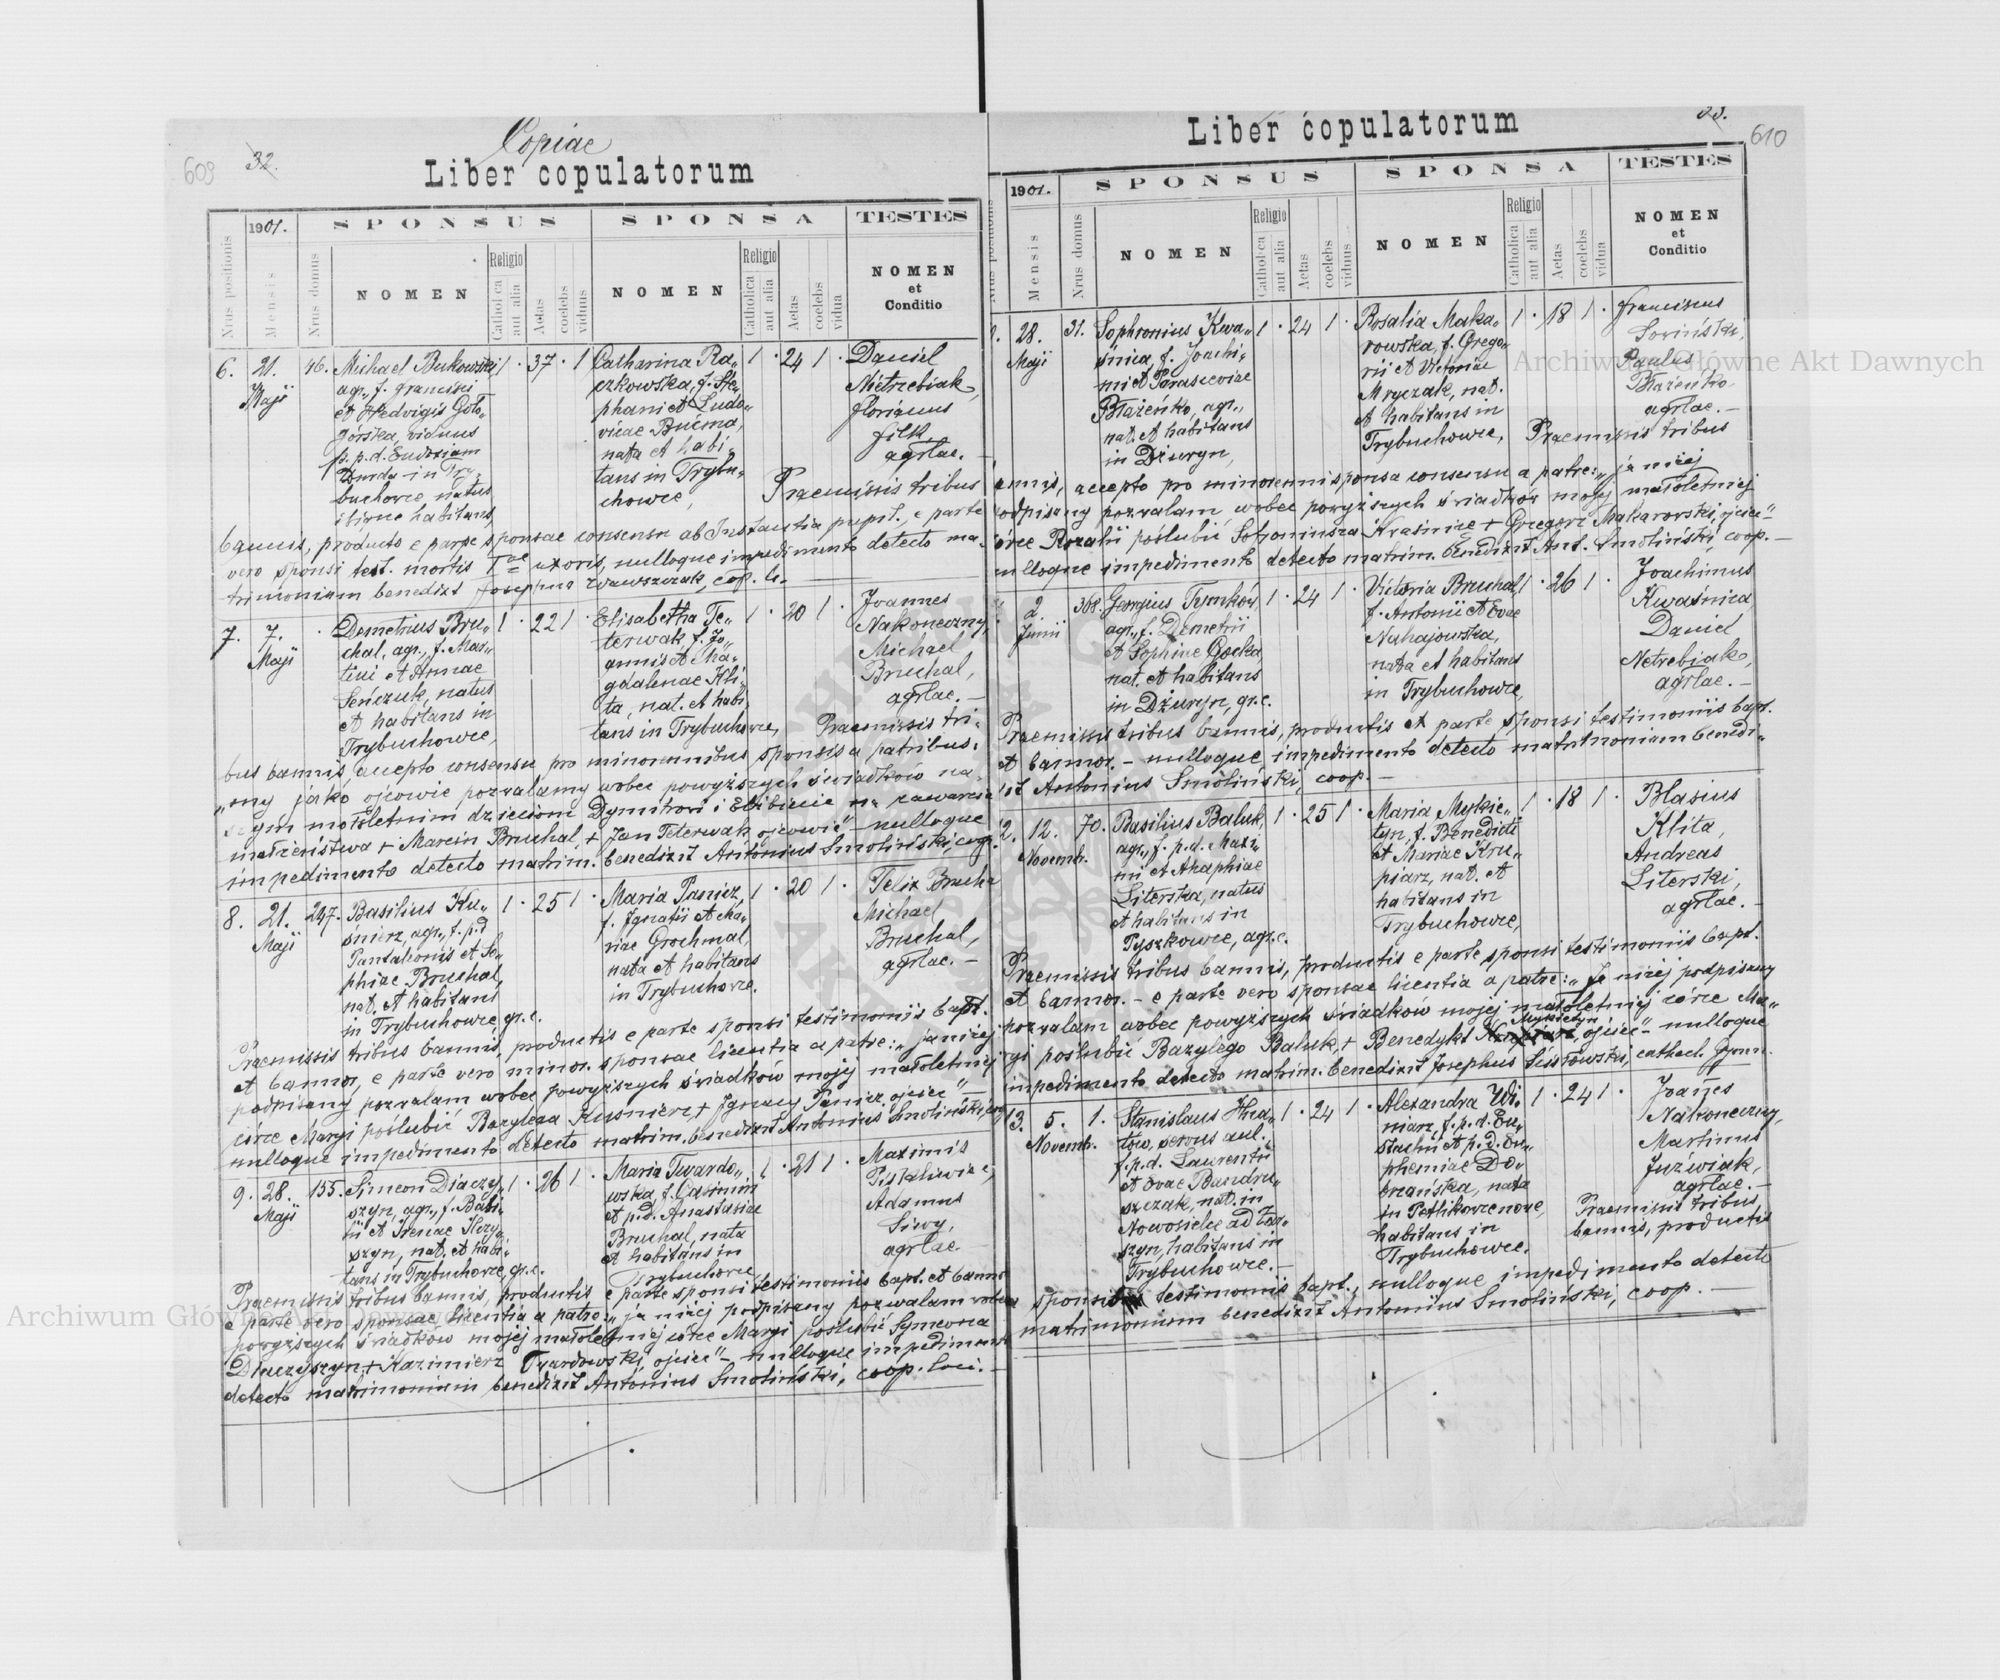 Copiae
609
32.
Liber copulatorum
1901.
SPONSUS
SPONSA
TESTES
Nrus positionis
Mensis
Nrus domus
NOMEN
Religio
Catholica
aut alia
Aetas
coelebs
viduus
NOMEN
Religio
Catholica
aut alia
Aetas
coelebs
vidua
NOMEN
et
Conditio
6. 21. Maji 46. 1 · 37 · 1 1 · 24 1 ·
Michael Bukowski
agr., f. Francisci
et Hedvigis Goło„
górska, viduus
p. p. d. Eudoxiam
Durda in Try„
buchowce, natus
ibique habitans,
Catharina Ra„
czkowska, f. Ste„
phani et Ludo„
vicae Bucma,
nata et habi„
tans in Trybu„
chowce,
Daniel
Nietrebiak,
Florianus
Filk,
agrlae. —
Praemissis tribus
bannis, producto e parte sponsae consensu ab Instantia pupil. e parte
vero sponsi test. mortis Iae uxoris, nulloque impedimento detecto ma„
trimonium benedixit Josephus Wawszczak, cop. l. —
7. 7. Maji · 1 · 22 1 · 1 · 20 1 ·
Demetrius Bru„
chal, agr., f. Mar„
tini et Annae
Seńczuk, natus
et habitans in
Trybuchowce,
Elisabetha Te„
terwak f. Jo„
annis et Ma„
gdalenae Kli„
ta, nat. et habi„
tans in Trybuchowce,
Joannes
Nakoneczny,
Michael
Bruchal,
agrlae. —
Praemissis tri„
bus bannis, accepto consensu pro minorennibus sponsis a patribus:
„my jako ojcowie pozwalamy wobec powyższych świadków na„
szym małoletnim dzieciom Dymitrowi i Elżbiecie na zawarcie
małżeństwa + Marcin Bruchal, + Jan Teterwak ojcowie" — nulloque
impedimento detecto matrim. benedixit Antonius Smoliński, coop.
8. 21. Maji 247. 1 · 25 1 · 1 · 20 1 ·
Basilius Ku„
śnierz, agr., f. p.d.
Pantalionis et So„
phiae Bruchal,
nat. et habitans
in Trybuchowce, gr. c.
Maria Panicz,
f. Ignatii et Ma„
riae Grochmal,
nata et habitans
in Trybuchowce.
Felix Brucha
Michael
Bruchal,
agrlae. —
Praemissis tribus bannis, productis e parte sponsi testimoniis bapt.
et bannor., e parte vero minor. sponsae licentia a patre: „ja niżej
podpisany pozwalam wobec powyższych świadków mojej małoletniej
córce Maryi poślubić Bazylego Kusnierz + Ignacy Panicz, ojciec",
nulloque impedimento detecto matrim. benedixit Antonius Smoliński,
9. 28. Maji 155. 1 · 26 1 · 1 · 21 1 ·
Simeon Diaczy„
szyn, agr., f. Basi„
lii et Ireniae Hry„
szyn, nat. et habi„
tans in Trybuchowce, gr. c.
Maria Twardo„
wska, f. Casimiri
et p.d. Anastasiae
Bruchal, nata
et habitans in
Trybuchowce
Maximis
Adamus
Siwy,
agrlae. —
Praemissis tribus bannis, productis e parte sponsi testimoniis bapt. et bannor.
e parte vero sponsae licentia a patre: „ja niżej podpisany pozwalam wobec
powyższych świadków mojej małoletniej córce Maryi poślubić Symeona
Diaczyszyn + Kazimierz Twardowski, ojciec" — nulloque impedimento
detecto matrimonium benedixit Antonius Smoliński, coop. loci. —
610
Liber copulatorum
1901.
SPONSUS
SPONSA
TESTES
Nrus positionis
Mensis
Nrus domus
NOMEN
Religio
Catholica
aut alia
Aetas
coelebs
viduus
NOMEN
Religio
Catholica
aut alia
Aetas
coelebs
vidua
NOMEN
et
Conditio
28. Maji 31. 1 · 24 1 · 1 · 18 1 ·
Sophronius Kwa„
śnica, f. Joachi„
mi et Parasceviae
Błażeńko, agr.,
nat. et habitans
in Dżuryn,
Rosalia Maka„
rowska, f. Grego„
rii et Victoriae
Mryczak, nat.
et habitans in
Trybuchowce,
Franciscus
Soriński,
Paulus
Błażeńko
agrlae. —
Praemissis tribus
bannis, accepto pro minorenni sponsa consensu a patre: „ja niżej
podpisany pozwalam wobec powyższych świadków mojej małoletniej
córce Rozalii poślubić Sofroniusza Kraśnicę + Gregorz Makarowski, ojciec" —
nulloque impedimento detecto matrim. benedixit Ant. Smoliński, coop. —
2. Junii 308. 1 · 24 1 · 1 · 26 1 ·
Georgius Tymków,
agr., f. Demetrii
et Sophiae Gocka,
nat. et habitans
in Dżuryn, gr. c.
Victoria Bruchal,
f. Antonii et Evae
Nahajowska,
nata et habitans
in Trybuchowce,
Joachimus
Kwaśnica,
Daniel
Netrebiak,
agrlae. —
Praemissis tribus bannis, productis et parte sponsi testimoniis bapt.
et bannor. — nulloque impedimento detecto matrimonium benedi„
xit Antonius Smoliński, coop. —
12. 12. Novemb. 70. 1 · 25 1 · 1 · 18 1 ·
Basilius Baluk,
agr., f. p.d. Maxi„
mi et Ahaphiae
Literska, natus
et habitans in
Pyszkowce, agr. c.
Maria Mykie„
tyn, f. Benedicti
et Mariae Kru„
piarz, nat. et
habitans in
Trybuchowce,
Blasius
Klita,
Andreas
Literski,
agrlae. —
Praemissis tribus bannis, productis e parte sponsi testimoniis bapt.
et bannor. — e parte vero sponsae licentia a patre: „Ja niżej podpisany
pozwalam wobec powyższych świadków mojej małoletniej córce Ma„
ryi poślubić Bazylego Baluk, + Benedykt Mykietyn ojciec" — nulloque
impedimento detecto matrim. benedixit Josephus Lisstowski, cathech. Gymn.
13. 5. Novemb. 1. 1 · 24 1 · 1 · 24 1 ·
Stanislaus Hna„
tow, servus aul.,
f. p.d. Laurentii
et Evae Bundru„
szczak, nat. in
Nowosielce ad Zar„
szyn, habitans in
Trybuchowce. —
Alexandra Wi„
niarz, f. p.d. Eu„
stachii et p.d. Eu„
phemiae Do„
brzańska, nata
in Petlikowce nowe,
habitans in
Trybuchowce.
Joañes
Nakoneczny,
Martinus
Juźwiak,
agrlae. —
Praemissis tribus
bannis, productis
sponsi testimoniis bapt., nulloque impedimento detecto
matrimonium benedixit Antoniius Smoliński, coop. —
Archiwum Główne Akt Dawnych
Archiwum Główne Akt Dawnych